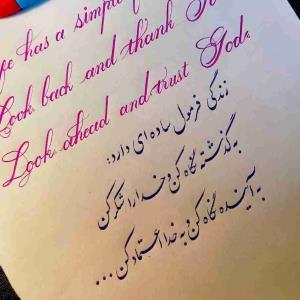 has a simple
Look back and thank
Look ahead and trust God.
زندگی فرمول ساده ای دارد:
به گذشته نگاه کن و خدا را شکر کن
به آینده نگاه کن و به خدا اعتماد کن ...